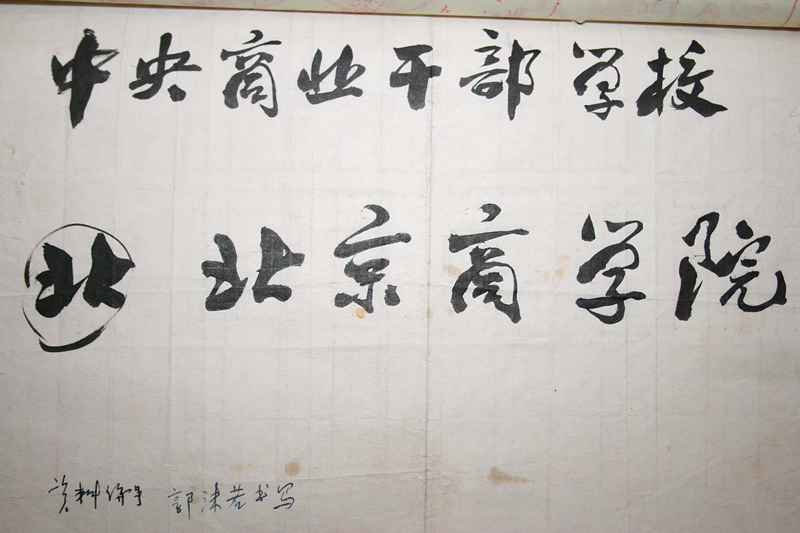 中央商业干部学校
北 北京商学院
资料 郭沫若书写